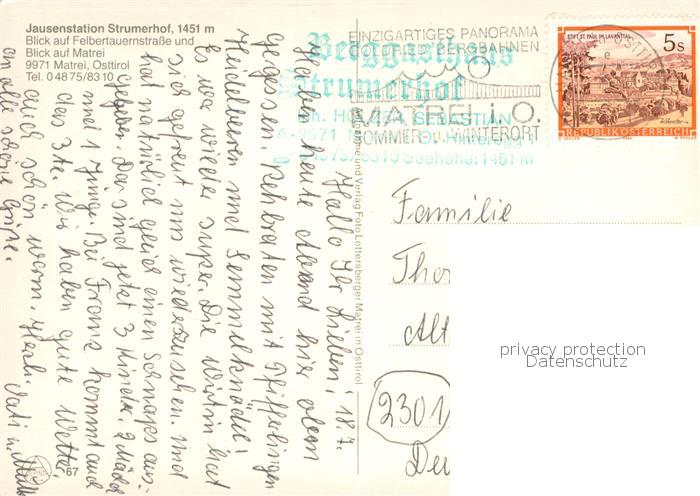 Jausenstation Strumerhof, 1451 m
Blick auf Felbertauernstraße und
Blick auf Matrei
9971 Matrei, Osttirol
Tel. 04875/8310
Berggasthaus
Strumerhof
SEBASTIAN
A-9971
04875/8310 Seehöhe: 1451 m
EINZIGARTIGES PANORAMA
BERGBAHNEN
MATREI i.O.
SOMMER- U. WINTERORT
STIFT ST. PAUL IM LAVANTTAL
5 S
REPUBLIK ÖSTERREICH
und Verlag Foto Lottersberger Matrei in Osttirol
18.7.
Hallo Ihr Lieben!
Haben heute Abend hier oben
gegessen. Rehbraten mit Pfifferlingen
Heidelbeeren und Semmelknödel!
Es war wieder super. Die Wirtin hat
sich gefreut uns wiederzusehen. und
hat natürlich gleich einen Schnaps aus-
gegeben. Da sind jetzt 3 Kinder. 2 Mädel
und 1 Junge. Bei Franz kommt auch
das 3te. Wir haben gute Wetter
auch schön warm. Herzl.
an alle schöne Grüße. Vati u.
Familie
Tho
Alt
2301
Deu
67
privacy protection
Datenschutz